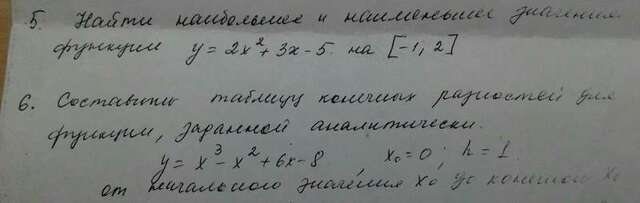 5. Найти наибольшее и наименьшее значения
функции y = 2x² + 3x - 5 на [-1, 2]
6. Составить таблицу конечных разностей для
функции, заданной аналитически.
y = x³ - x² + 6x - 8, x₀ = 0; h = 1.
от начального значения x₀ до конечного